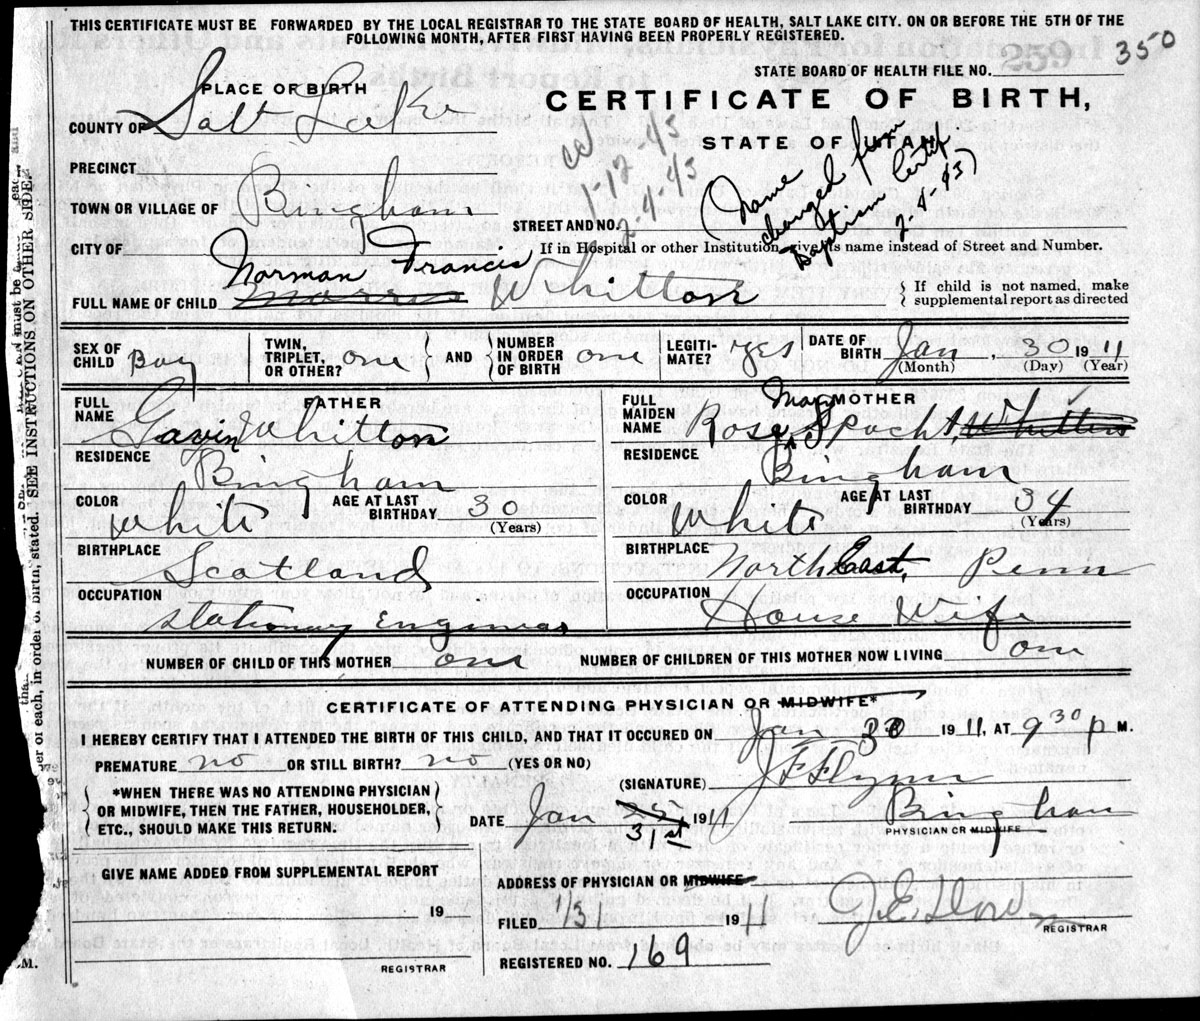 THIS CERTIFICATE MUST BE FORWARDED BY THE LOCAL REGISTRAR TO THE STATE BOARD OF HEALTH, SALT LAKE CITY. ON OR BEFORE THE 5TH OF THE
FOLLOWING MONTH, AFTER FIRST HAVING BEEN PROPERLY REGISTERED.
259 350
STATE BOARD OF HEALTH FILE NO.
PLACE OF BIRTH
CERTIFICATE OF BIRTH,
COUNTY OF Salt Lake
STATE OF UTAH
PRECINCT
(Name changed from Baptism Certif. 2-4-43)
2-4-43
TOWN OR VILLAGE OF Bingham
STREET AND NO.
CITY OF
If in Hospital or other Institution, give its name instead of Street and Number.
Norman Francis
FULL NAME OF CHILD Morris Whitton
If child is not named, make
supplemental report as directed
SEX OF CHILD Boy
TWIN, TRIPLET, OR OTHER? one
AND
NUMBER IN ORDER OF BIRTH one
LEGITI-MATE? yes
DATE OF BIRTH Jan, 30 1911
(Month) (Day) (Year)
FATHER
FULL NAME Gavin Whitton
RESIDENCE Bingham
COLOR White AGE AT LAST BIRTHDAY 30
(Years)
BIRTHPLACE Scotland
OCCUPATION Stationary Engineer
MOTHER
FULL MAIDEN NAME Rose May Spacht, Whitton
RESIDENCE Bingham
COLOR White AGE AT LAST BIRTHDAY 34
(Years)
BIRTHPLACE North East, Penn
OCCUPATION House Wife
NUMBER OF CHILD OF THIS MOTHER one NUMBER OF CHILDREN OF THIS MOTHER NOW LIVING one
CERTIFICATE OF ATTENDING PHYSICIAN OR MIDWIFE*
I HEREBY CERTIFY THAT I ATTENDED THE BIRTH OF THIS CHILD, AND THAT IT OCCURED ON Jan 30 1911, AT 9 30 P M.
PREMATURE no OR STILL BIRTH? no (YES OR NO)
(SIGNATURE) J F Flynn
*WHEN THERE WAS NO ATTENDING PHYSICIAN
OR MIDWIFE, THEN THE FATHER, HOUSEHOLDER,
ETC., SHOULD MAKE THIS RETURN.
DATE Jan 31st 1911
Bingham
PHYSICIAN OR MIDWIFE
GIVE NAME ADDED FROM SUPPLEMENTAL REPORT
19
REGISTRAR
ADDRESS OF PHYSICIAN OR MIDWIFE
FILED 1/31 1911
REGISTRAR
REGISTERED NO. 169
SEE INSTRUCTIONS ON OTHER SIDE